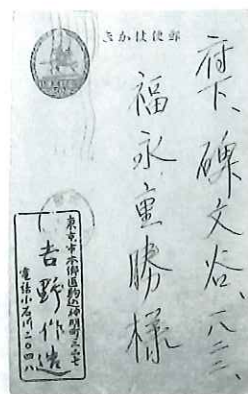 郵便はかき
府下、碑文谷、一八二三、
福永重勝様
東京市本郷區駒込神明町三二七
吉野作造
電話小石川二〇四八